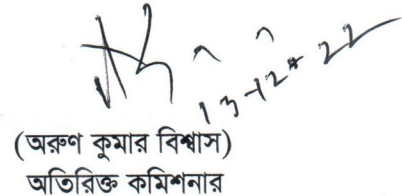 13-12-22
(অরুণ কুমার বিশ্বাস)
অতিরিক্ত কমিশনার